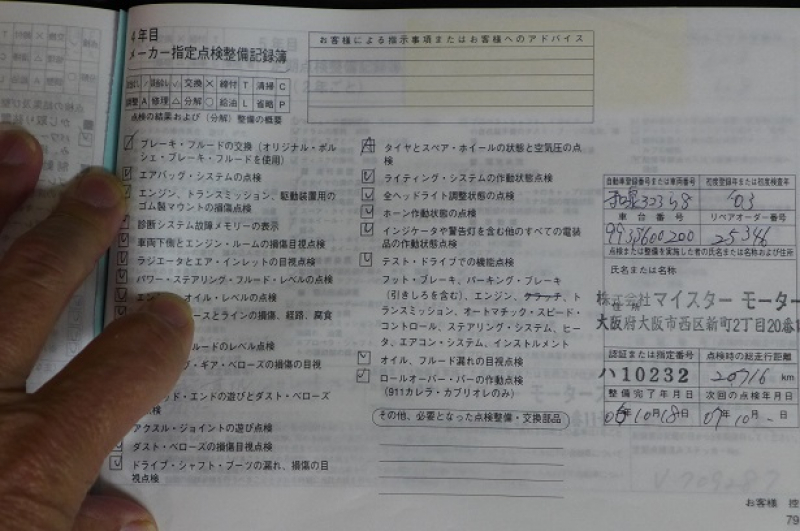 4年目
メーカー指定点検整備記録簿
交換 × 締付 T 清掃 C
調整 A 修理 △ 分解 ○ 給油 L 省略 P
点検の結果および(分解)整備の概要
ブレーキ・フルードの交換(オリジナル・ポル
シェ・ブレーキ・フルードを使用)
エアバッグ・システムの点検
エンジン、トランスミッション、駆動装置用の
ゴム製マウントの損傷点検
診断システム故障メモリーの表示
車両下側とエンジン・ルームの損傷目視点検
ラジエータとエア・インレットの目視点検
パワー・ステアリング・フルード・レベルの点検
オイル・レベルの点検
ースとラインの損傷、経路、腐食
ルードのレベル点検
・ギア・ベローズの損傷の目視
ッド・エンドの遊びとダスト・ベローズ
点検
アクスル・ジョイントの遊び点検
ダスト・ベローズの損傷目視点検
ドライブ・シャフト・ブーツの漏れ、損傷の目
視点検
お客様による指示事項またはお客様へのアドバイス
タイヤとスペア・ホイールの状態と空気圧の点
検
ライティング・システムの作動状態点検
全ヘッドライト調整状態の点検
ホーン作動状態の点検
インジケータや警告灯を含む他のすべての電装
品の作動状態点検
テスト・ドライブでの機能点検
フット・ブレーキ、パーキング・ブレーキ
(引きしろを含む)、エンジン、クラッチ、ト
ランスミッション、オートマチック・スピード・
コントロール、ステアリング・システム、ヒー
タ、エアコン・システム、インストルメント
オイル、フルード漏れの目視点検
ロールオーバー・バーの作動点検
(911カレラ・カブリオレのみ)
その他、必要となった点検整備・交換部品
自動車登録番号または車両番号 初度登録年または初度検査年
和泉 323 ら8 '03
車台番号 リペアオーダー番号
99335600200 25346
点検または整備を実施した者の氏名または名称および住所
氏名または名称
株式会社マイスター モーター
住所
大阪府大阪市西区新町2丁目20番1
認証または指定番号 点検時の総走行距離
ハ10232 20716 km
整備完了年月日 次回の点検年月日
05年10月18日 07年10月-日
お客様 控
79